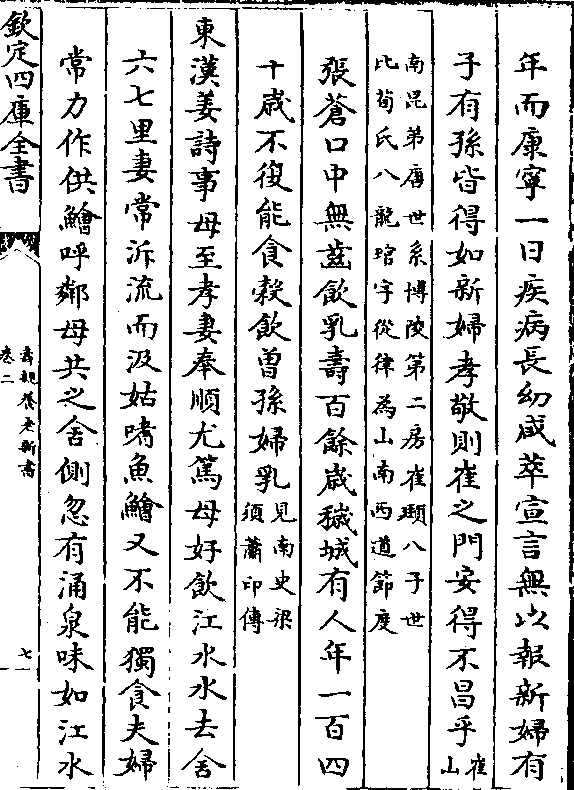 年而康寧一日疾病長幼咸萃宣言無以報新婦有
子有孫皆得如新婦孝敬則崔之門安得不昌乎崔山
南昆弟唐世系博陵第二房崔頲八子世
比荀氏八龍琯字從律為山南西道節度
張蒼口中無齒飲乳壽百餘歲穰城有人年一百四
十歲不復能食穀飲曽孫婦乳見南史梁
須蕭印傳
東漢姜詩事母至孝妻奉順尤篤母好飲江水水去舍
六七里妻常泝流而汲姑嗜魚鱠又不能獨食夫婦
常力作供鱠呼鄰母共之舍側忽有涌泉味如江水
欽定四庫全書
壽親養老新書
卷二
七